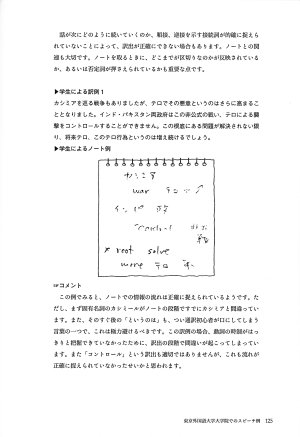 話が次にどのように続いていくのか、順接、逆接を示す接続詞が的確に捉えら
れていないことによって、訳出が正確にできない場合もあります。ノートとの関
連も大切です。ノートを取るときに、どこまでが区切りなのかが反映されている
か、あるいは否定詞が押さえられているかも重要な点です。
▶学生による訳例1
カシミアを巡る戦争もありましたが、テロでその態意というのはさらに高まるこ
ととなりました。インド・パキスタン両政府はこの非公式の戦い、テロによる襲
撃をコントロールすることができません。この根底にある問題が解決されない限
り、将来テロ、このテロ行為というのは増え続けるでしょう。
▶学生によるノート例
カシミア
war テロ
インパ 政
control
× root solve
more テロ
☞コメント
この例でみると、ノートでの情報の流れは正確に捉えられているようです。た
だし、まず固有名詞のカシミールがノートの段階ですでにカシミアと間違ってい
ます。また、そのすぐ後の「というのは」も、つい通訳初心者が口にしてしまう
言葉の一つで、これは極力避けるべきです。この訳例の場合、動詞の時制がはっ
きりと把握できていなかったために、訳出の段階で間違いが起こってしまってい
ます。また「コントロール」という訳出も適切ではありませんが、これも流れが
正確に捉えられていなかったせいかと思われます。
東京外国語大学大学院でのスピーチ例 125